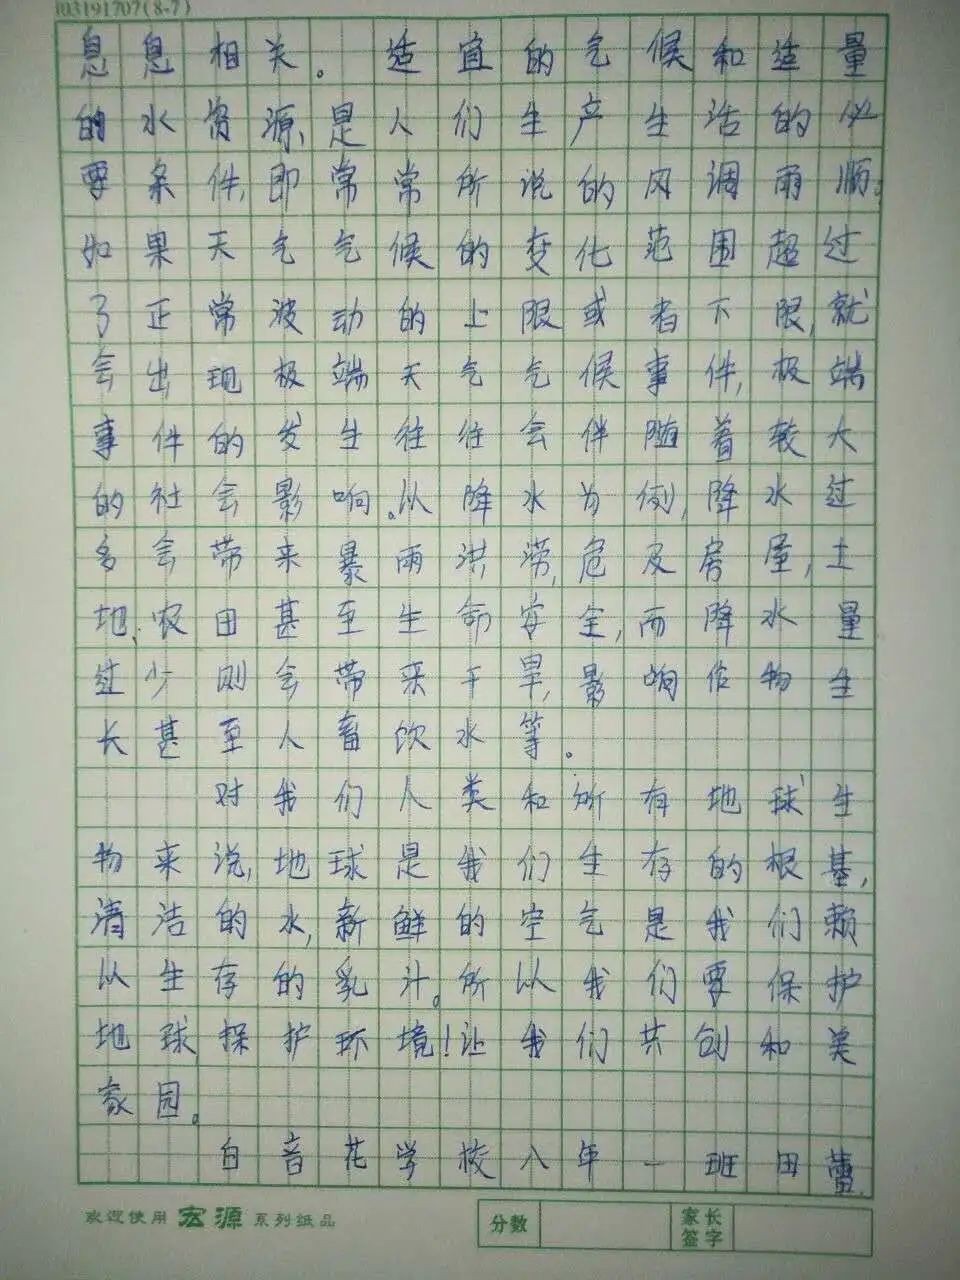 103191707(8-7)
息息相关。适宜的气候和适量
的水资源,是人们生产生活的必
要条件,即常常所说的风调雨顺。
如果天气气候的变化范围超过
了正常波动的上限或者下限,就
会出现极端天气气候事件,极端
事件的发生往往会伴随着较大
的社会影响。以降水为例,降水过
多会带来暴雨洪涝,危及房屋,土
地,农田甚至生命安全,而降水量
过少则会带来干旱,影响作物生
长甚至人畜饮水等。
对我们人类和所有地球生
物来说,地球是我们生存的根基,
清洁的水,新鲜的空气是我们赖
以生存的乳汁。所以我们要保护
地球,保护环境!让我们共创和美
家园。
白音花学校八年一班田蕾
欢迎使用 宏源 系列纸品
分数
家长签字